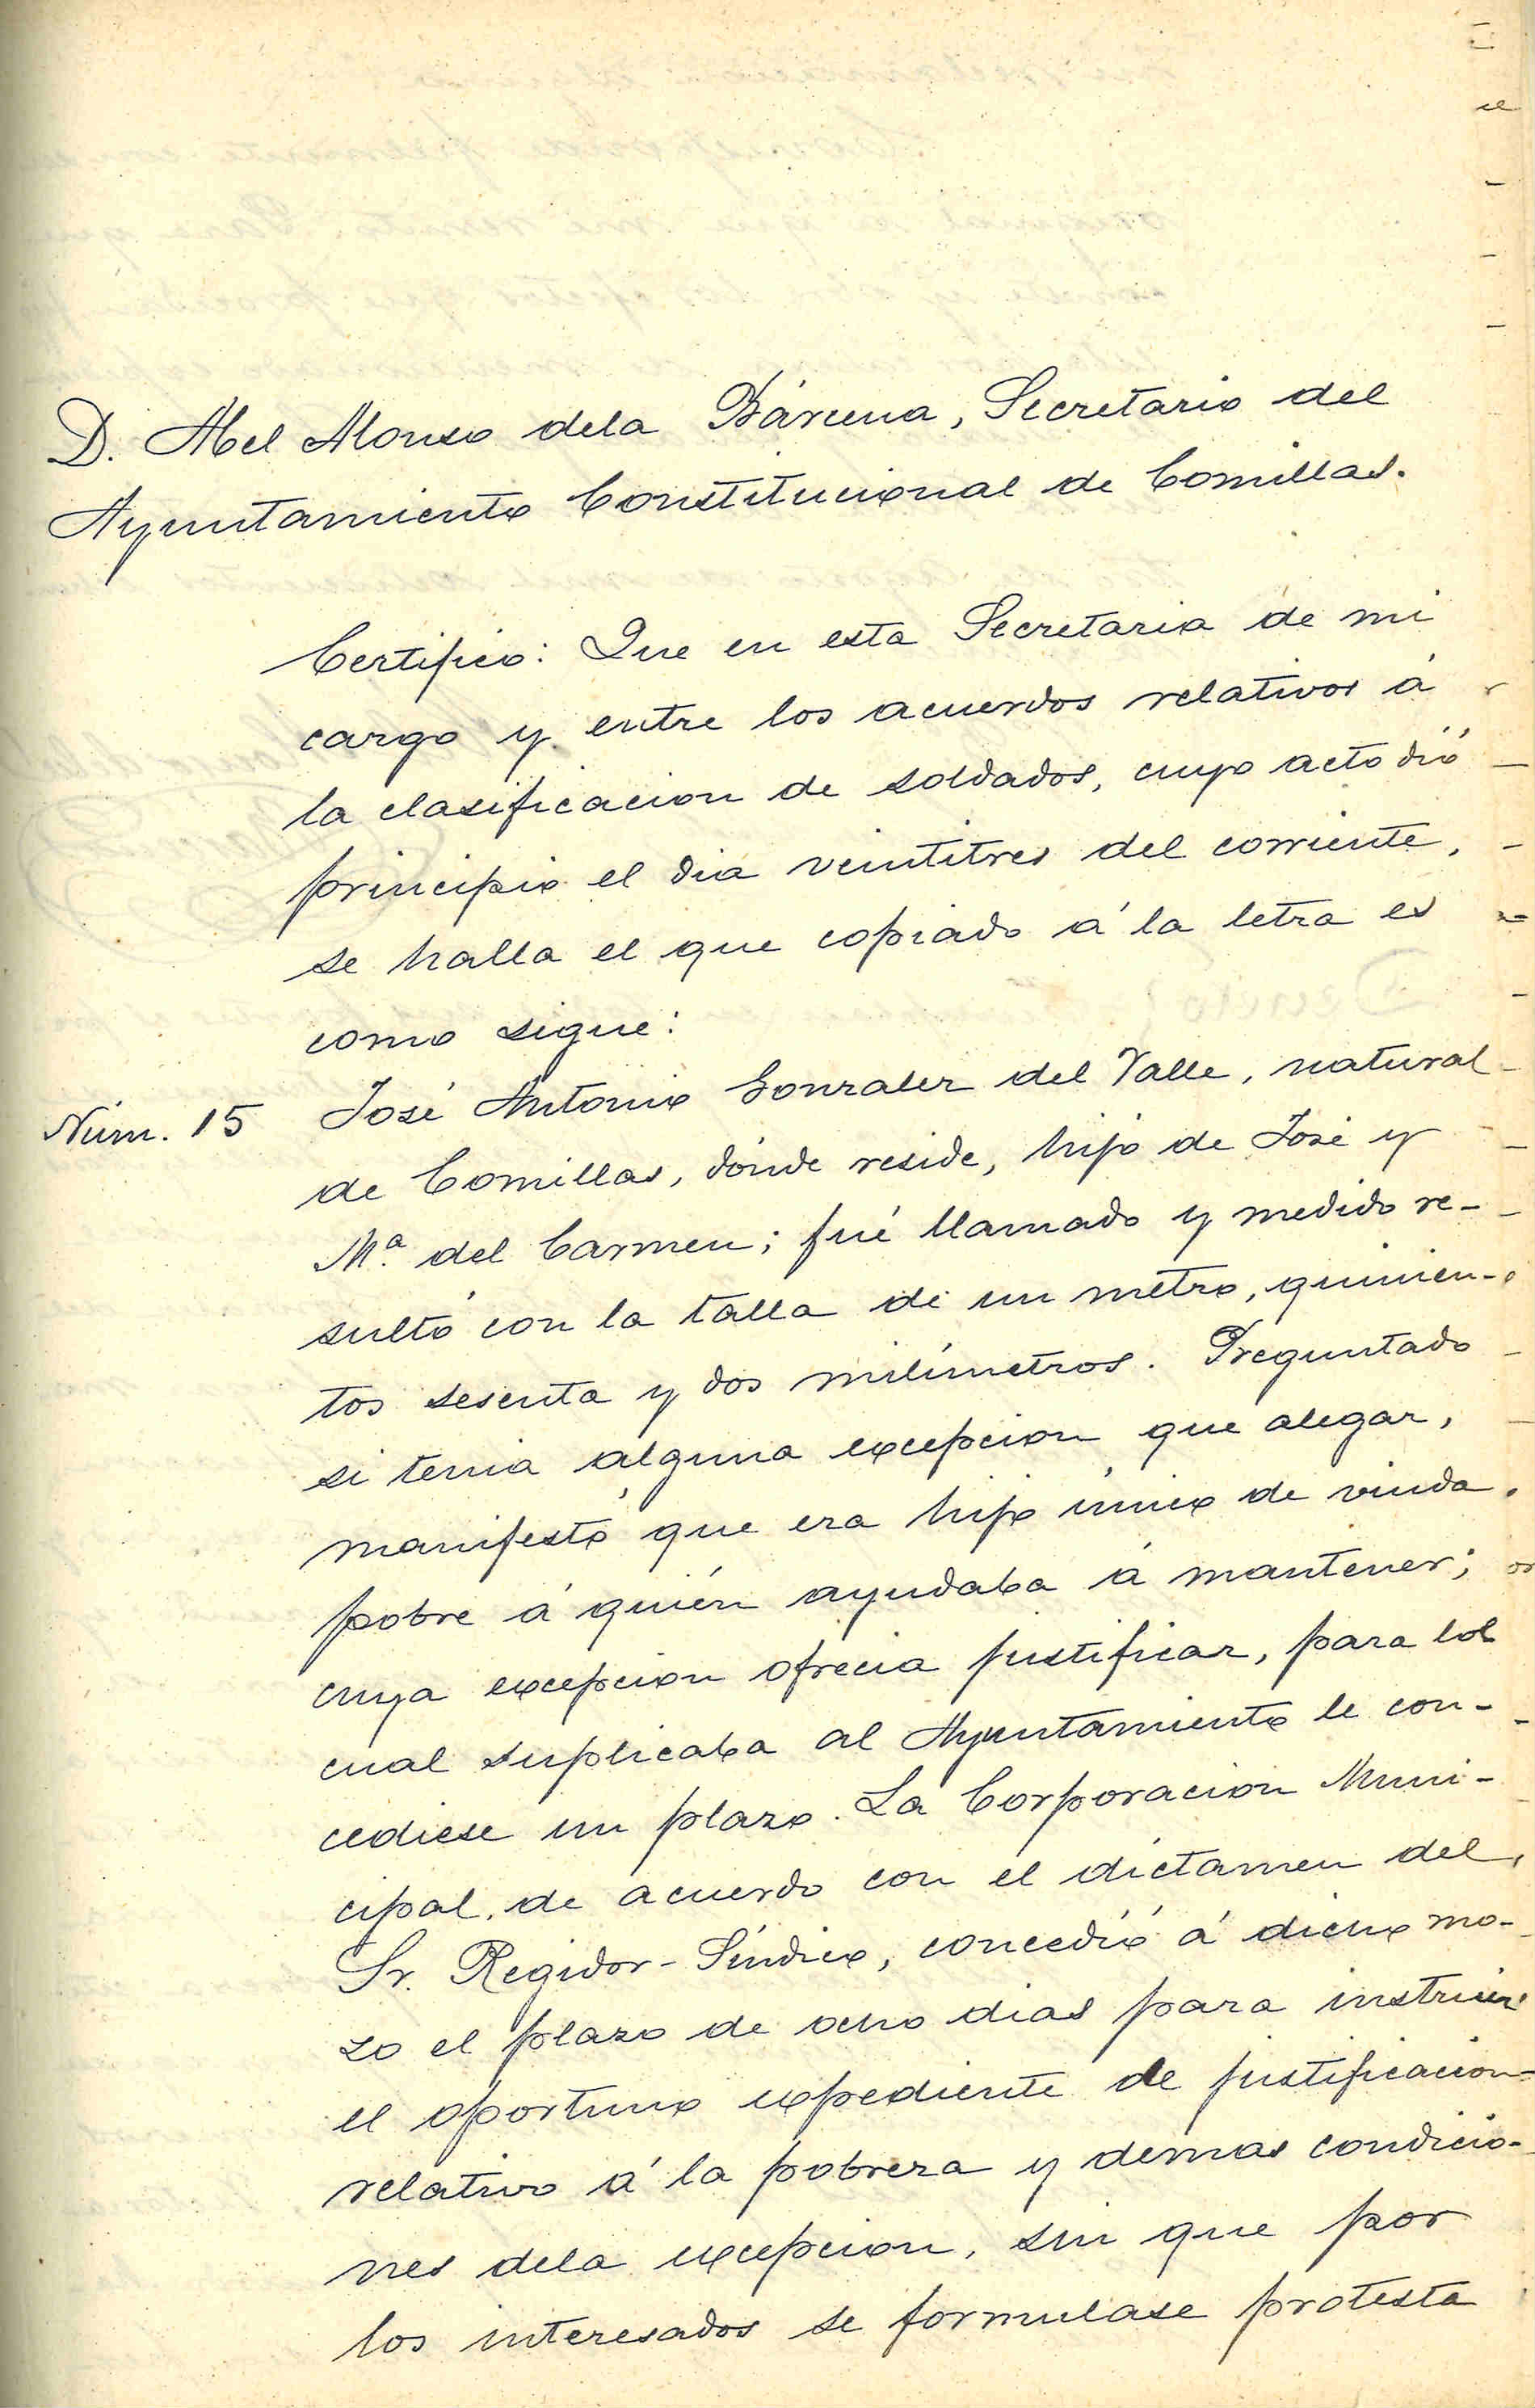 D. Abel Alonso dela Bárcena, Secretario del
Ayuntamiento Constitucional de Comillas.
Certifico: Que en esta Secretaria de mi
cargo y entre los acuerdos relativos á
la clasificacion de soldados, cuyo acto dió
principio el dia veintitres del corriente,
se halla el que copiado á la letra es
como sigue:
Núm. 15 José Antonio Gonzalez del Valle, natural
de Comillas, dónde reside, hijo de José y
Mª. del Carmen; fué llamado y medido re-
sultó con la talla de un metro, quinien-
tos sesenta y dos milímetros. Preguntado
si tenia alguna excepcion que alegar,
manifestó que era hijo único de viuda
pobre á quién ayudaba á mantener;
cuya excepcion ofrecia justificar, para lo
cual suplicaba al Ayuntamiento le con-
cediese un plazo. La Corporacion Muni-
cipal, de acuerdo con el dictamen del
Sr. Regidor-Síndico, concedió á dicho mo-
zo el plazo de ocho dias para instruir
el oportuno expediente de justificacion
relativo á la pobreza y demas condicio-
nes dela excepcion, sin que por
los interesados se formulase protesta